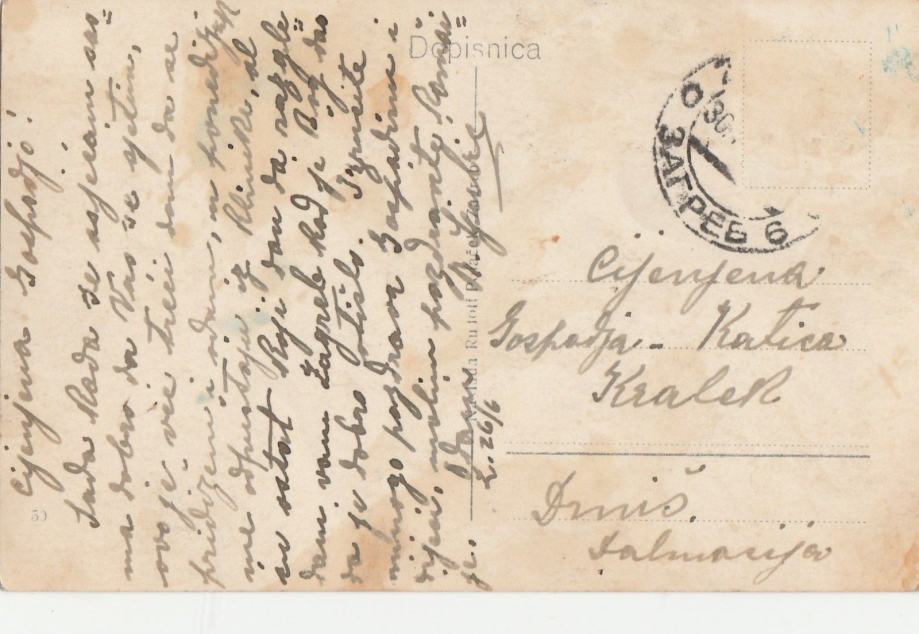 Dopisnica
30
ЗАГРЕБ 6
Cijenjena Gospodjo!
Sada kada se osjećam sas=
ma dobro da Vas se sjetim,
ovo je već treći dan da se
pridižem i odem, u ponedjeljk
me odpuštaju iz klinike, al
ću ostat koji dan da razgle=
dam vam Zagreb kad je Bog dao
da je dobro prošlo. Izručite
mnogo pozdrava Gospodinu i
djeci, molim pozdravite
je. Odana
L. 26/6
Naklada Rudolf
Cijenjena
Gospodja - Katica
Kralek
Drniš.
Dalmacija
50